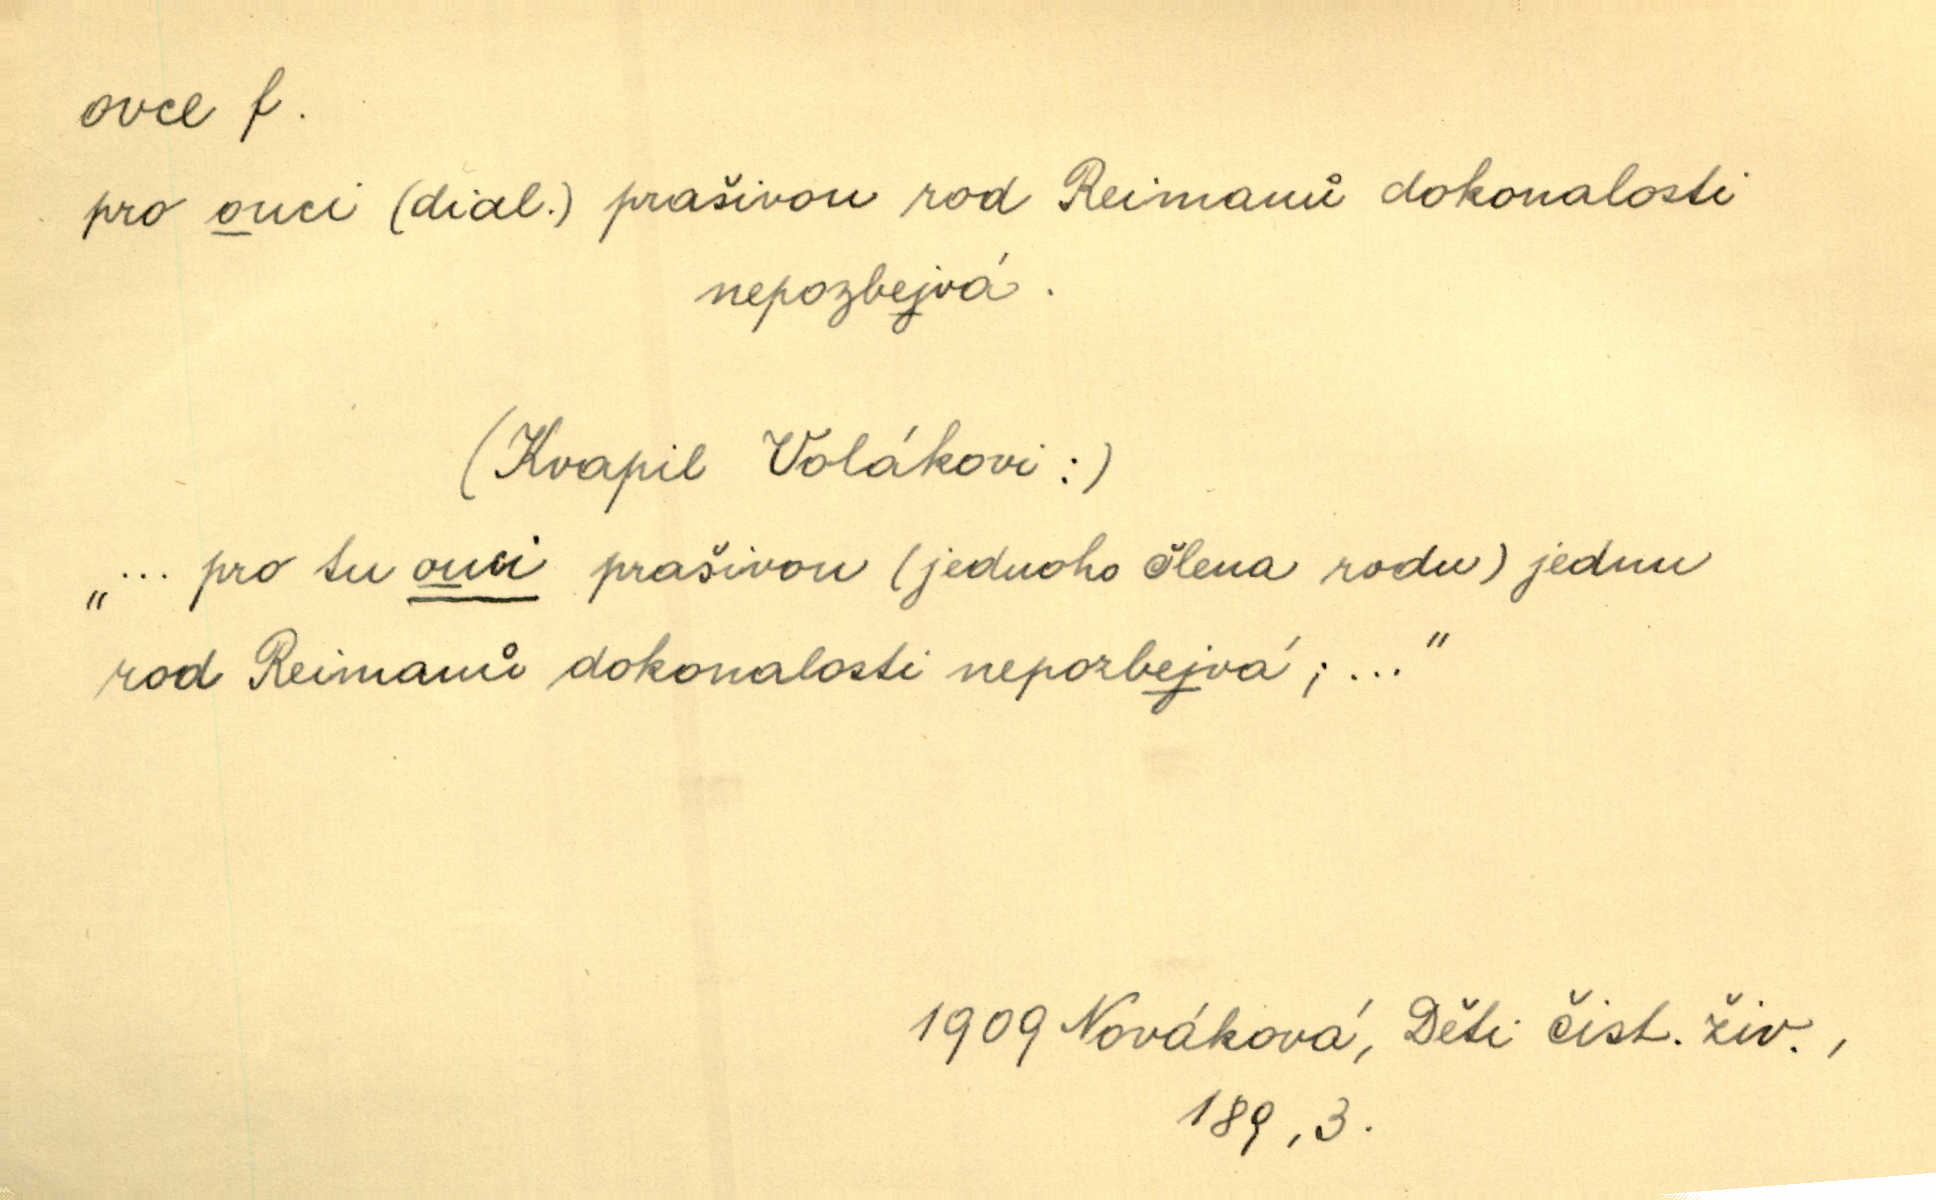 ovce f.
pro ouci (dial.) prašivou rod Reimanů dokonalosti
nepozbejvá.
(Kvapil Volákovi:)
„... pro tu ouci prašivou (jednoho člena rodu) jednu
rod Reimanů dokonalosti nepozbejvá; ..."
1909 Nováková, Děti čist. živ.,
189, 3.